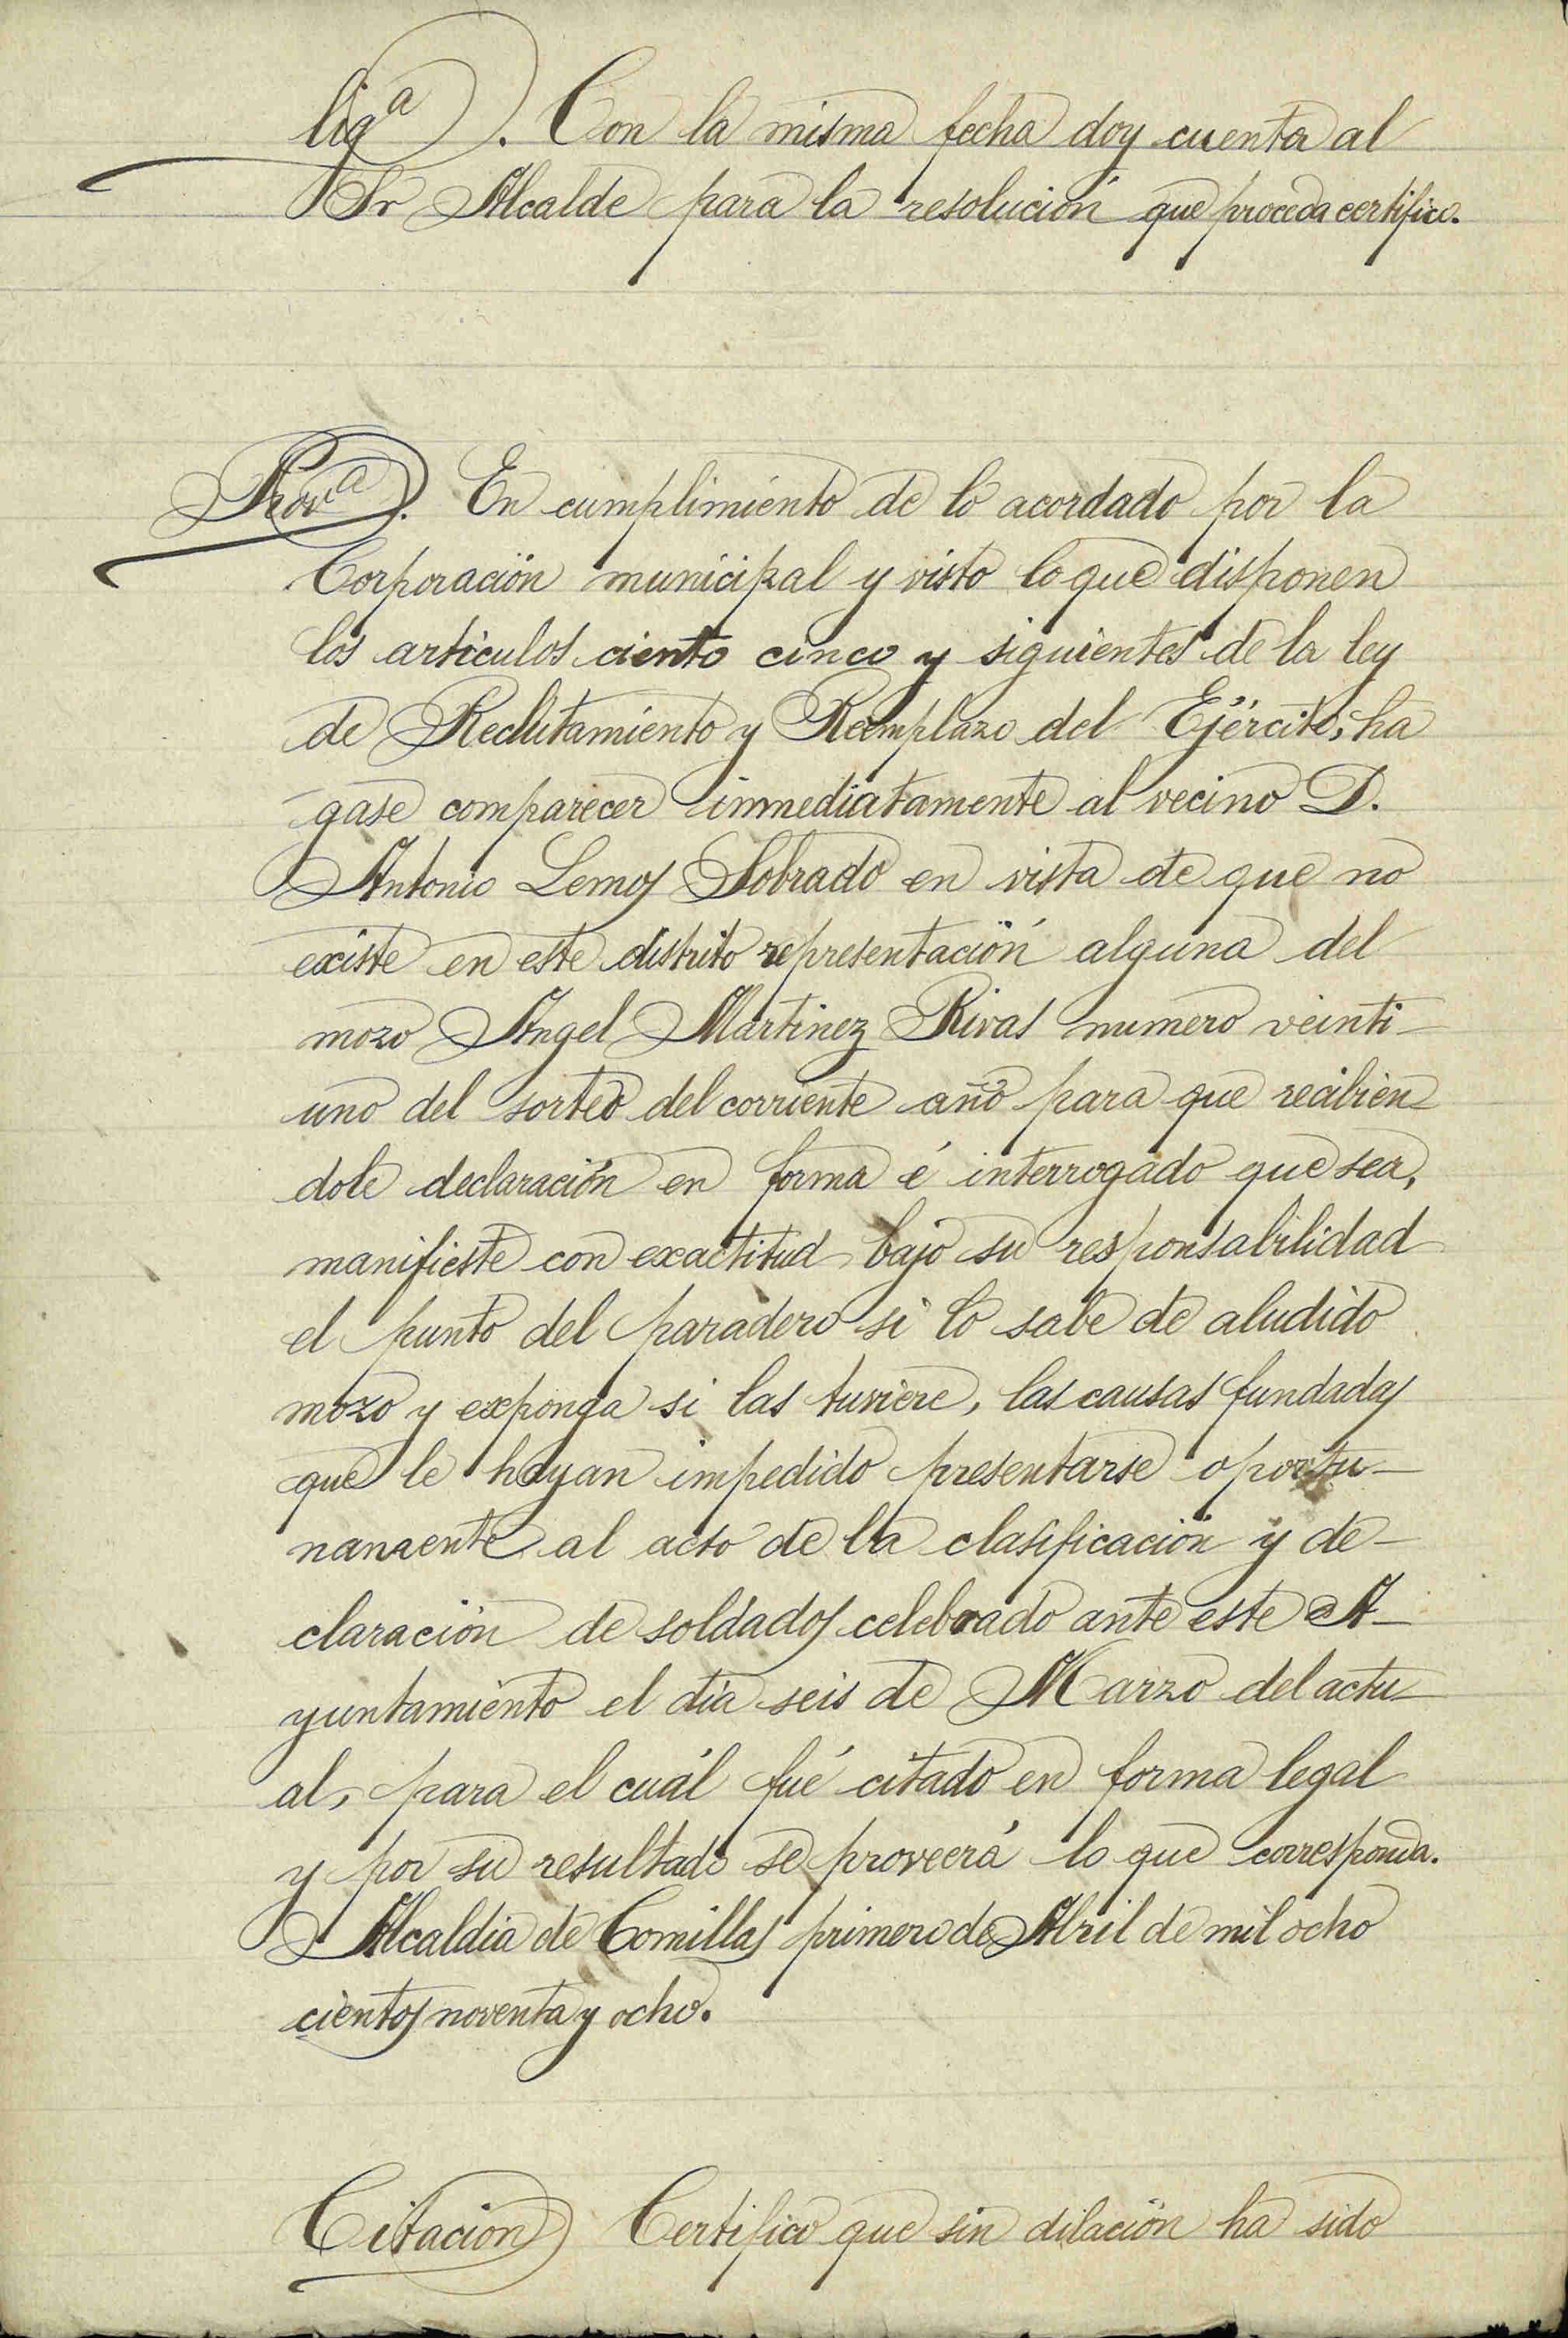 Ligª). Con la misma fecha doy cuenta al
Sr Alcalde para la resolución que proceda certifico.
Provª). En cumplimiento de lo acordado por la
Corporación municipal y visto lo que disponen
los artículos ciento cinco y siguientes de la ley
de Reclutamiento y Reemplazo del Ejército, ha
gase comparecer inmediatamente al vecino D.
Antonio Lemos Sobrado en vista de que no
existe en este distrito representación alguna del
mozo Angel Martinez Rivas numero veinti-
uno del sorteo del corriente año para que recibien-
dole declaración en forma é interrogado que sea,
manifieste con exactitud bajo su responsabilidad
el punto del paradero si lo sabe de aludido
mozo y exponga si las tuviere, las causas fundadas
que le hayan impedido presentarse oportu-
namente al acto de la clasificación y de-
claración de soldados celebrado ante este A-
yuntamiento el día seis de Marzo del actu-
al, para el cuál fué citado en forma legal
y por su resultado se proveerá lo que corresponda.
Alcaldia de Comillas primero de Abril de mil ocho
cientos noventa y ocho.
Citación) Certifico que sin dilación ha sido